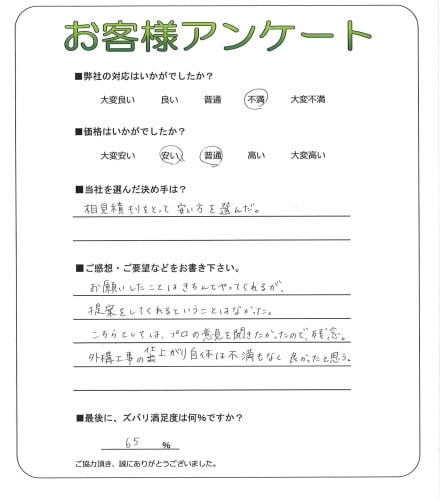 お客様アンケート
■弊社の対応はいかがでしたか？
大変良い 良い 普通 不満 大変不満
■価格はいかがでしたか？
大変安い 安い 普通 高い 大変高い
■当社を選んだ決め手は？
相見積もりをとって安い方を選んだ。
■ご感想・ご要望などをお書き下さい。
お願いしたことはきちんとやってくれるが、
提案をしてくれるということはなかった。
こちらとしては、プロの意見を聞きたかったので、残念。
外構工事の仕上がり自体は不満もなく良かったと思う。
■最後に、ズバリ満足度は何%ですか？
65 %
ご協力頂き、誠にありがとうございました。